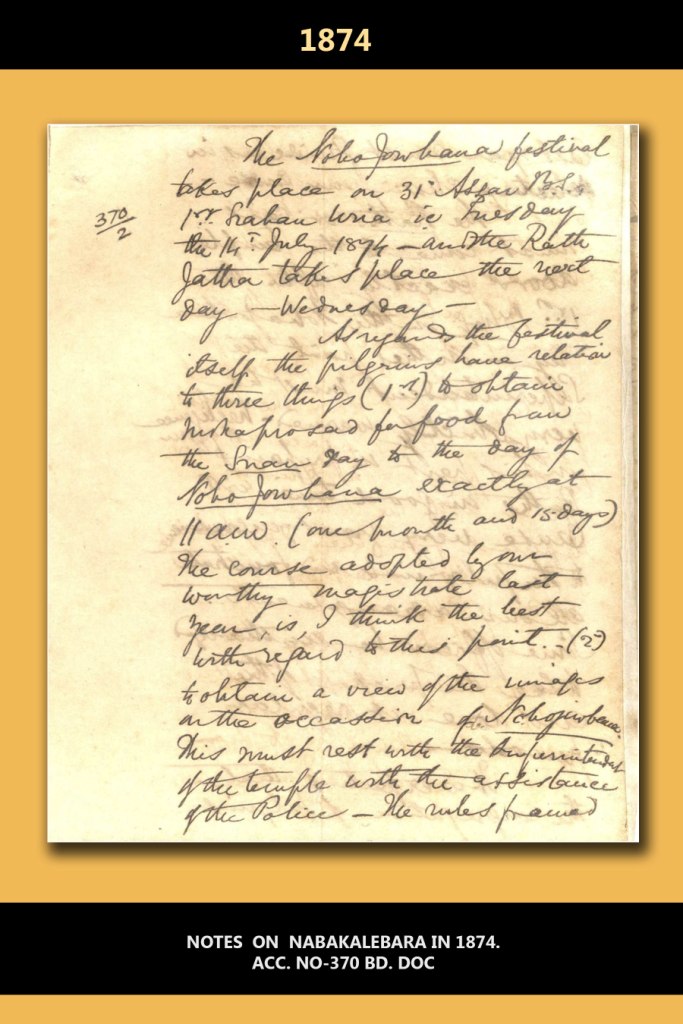 1874
The Nobo Jowbana festival
takes place on 31st Assar B.S.
1st Sraban Uria ie Tuesday
the 14th July 1874 – and the Rath
Jattra takes place the next
day – Wednesday –
370/2
As regards the festival
itself the pilgrims have relation
to three things (1st) to obtain
mohaprosad for food from
the Snan day to the day of
Nobo Jowbana exactly at
11 a.m. (one month and 15 days)
The course adopted by our
worthy magistrate last
year, is, I think the best
with regard to this point. – (2)
to obtain a view of the images
on the occassion of Nobojowbana.
This must rest with the Superintendent
of the temple with the assistance
of the Police – The rules framed
NOTES ON NABAKALEBARA IN 1874.
ACC. NO-370 BD. DOC